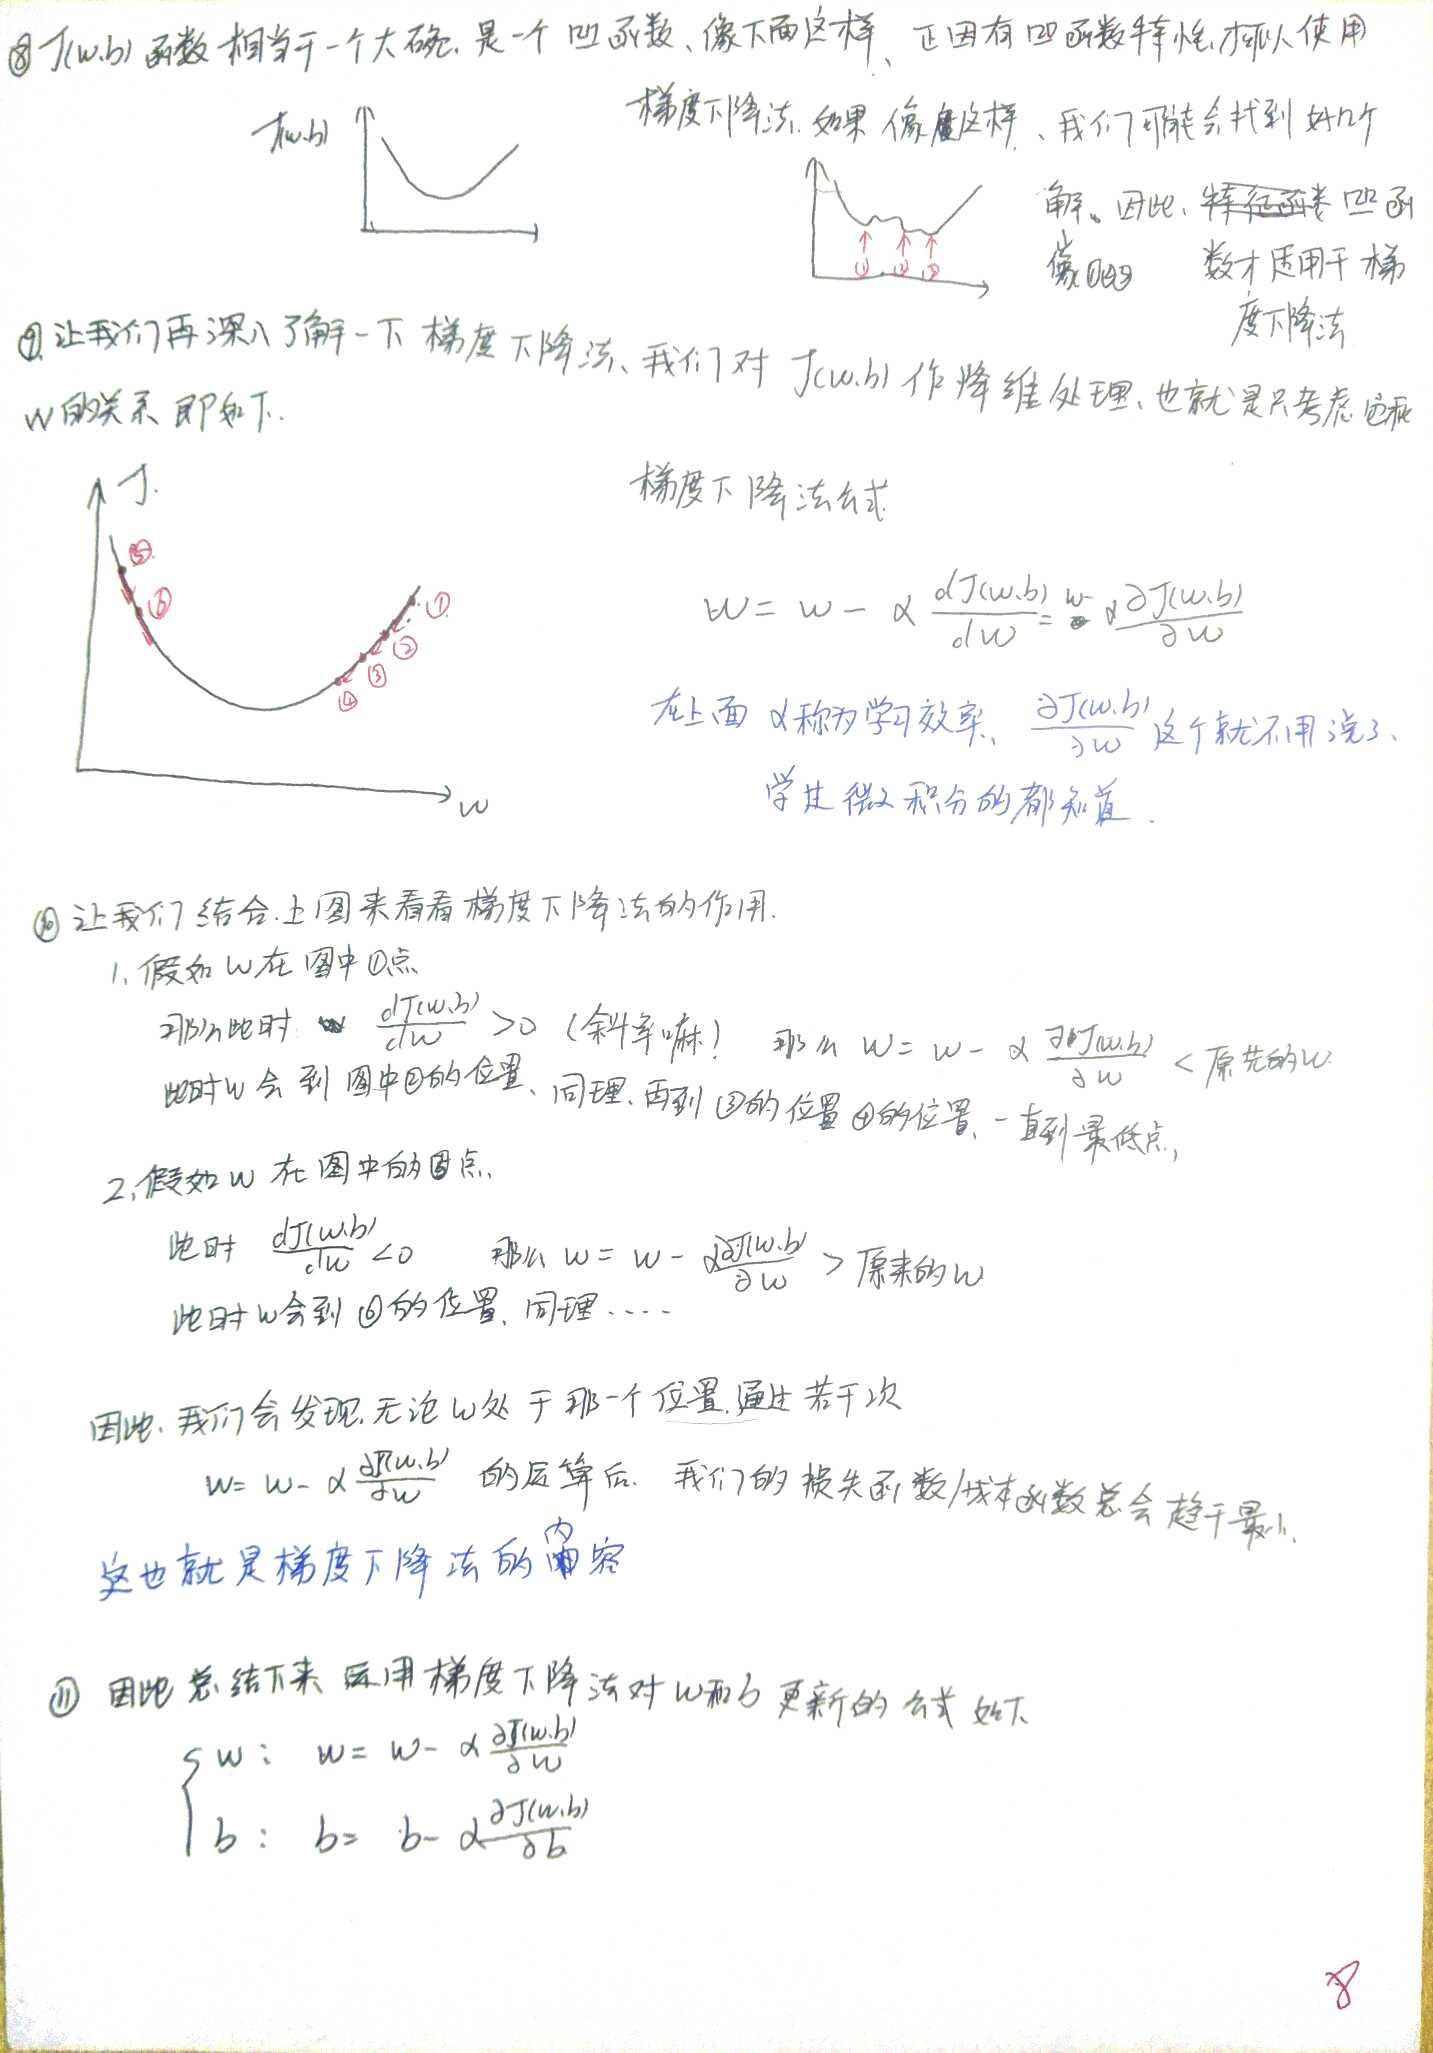 ⑧ J(w,b) 函数相当于一个大碗、是一个凹函数、像下面这样、正因有凹函数特性、才可以使用
梯度下降法、如果像这样、我们可能会找到好几个
解。因此、凹函
像①②③ 数才适用于梯
度下降法
J(w,b)
① ② ③
⑨ 让我们再深入了解一下梯度下降法、我们对 J(w,b) 作降维处理、也就是只考虑它和
w的关系 即如下.
J.
⑤
⑥
①
②
③
④
w
梯度下降法公式
w = w - α dJ(w,b)/dw = w - α ∂J(w,b)/∂w
在上面 α称为学习效率、 ∂J(w,b)/∂w 这个就不用说了、
学过微积分的都知道.
⑩ 让我们结合上图来看看梯度下降法的作用.
1. 假如w在图中①点
那么此时 dJ(w,b)/dw >0 (斜率嘛) 那么 w = w - α ∂J(w,b)/∂w < 原先的w
此时w会到图中②的位置、同理、再到③的位置④的位置、一直到最低点,
2. 假如w在图中的⑤点.
此时 dJ(w,b)/dw <0 那么 w = w - α∂J(w,b)/∂w > 原来的w
此时w会到⑥的位置、同理....
因此、我们会发现、无论w处于那一个位置、通过若干次
w = w - α ∂J(w,b)/∂w 的运算后、我们的损失函数/成本函数总会趋于最小.
这也就是梯度下降法的内容
⑪ 因此总结下来 运用梯度下降法对w和b更新的公式如下
w: w = w - α ∂J(w,b)/∂w
b: b = b - α ∂J(w,b)/∂b
8